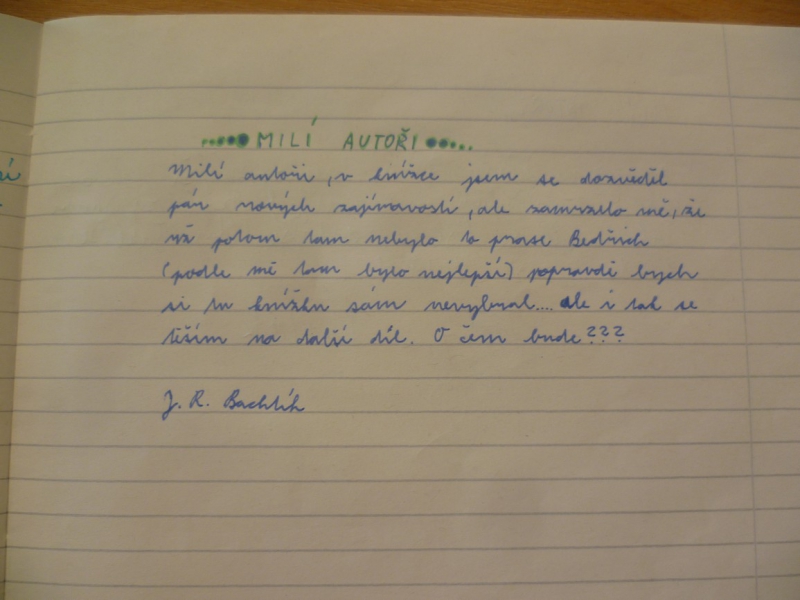 MILÍ AUTOŘI
Milí autoři, v knížce jsem se dozvěděl
pár nových zajímavostí, ale zamrzelo mě, že
už potom tam nebylo to prase Bedřich
(podle mě tam bylo nejlepší) popravdě bych
si tu knížku sám nevybral.... ale i tak se
těším na další díl. O čem bude???
J. R. Bachtík